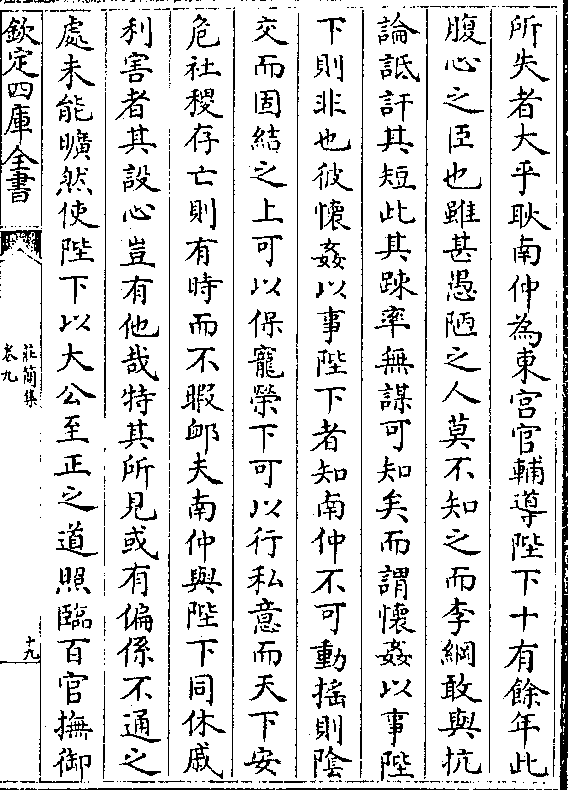 所失者大乎耿南仲為東宮官輔導陛下十有餘年此
腹心之臣也雖甚愚陋之人莫不知之而李綱敢與抗
論詆訐其短此其踈率無謀可知矣而謂懷姦以事陛
下則非也彼懷姦以事陛下者知南仲不可動搖則陰
交而固結之上可以保寵榮下可以行私意而天下安
危社稷存亡則有時而不暇卹夫南仲與陛下同休戚
利害者其設心豈有他哉特其所見或有偏係不通之
處未能曠然使陛下以大公至正之道照臨百官撫御
欽定四庫全書
莊簡集
卷九
十九